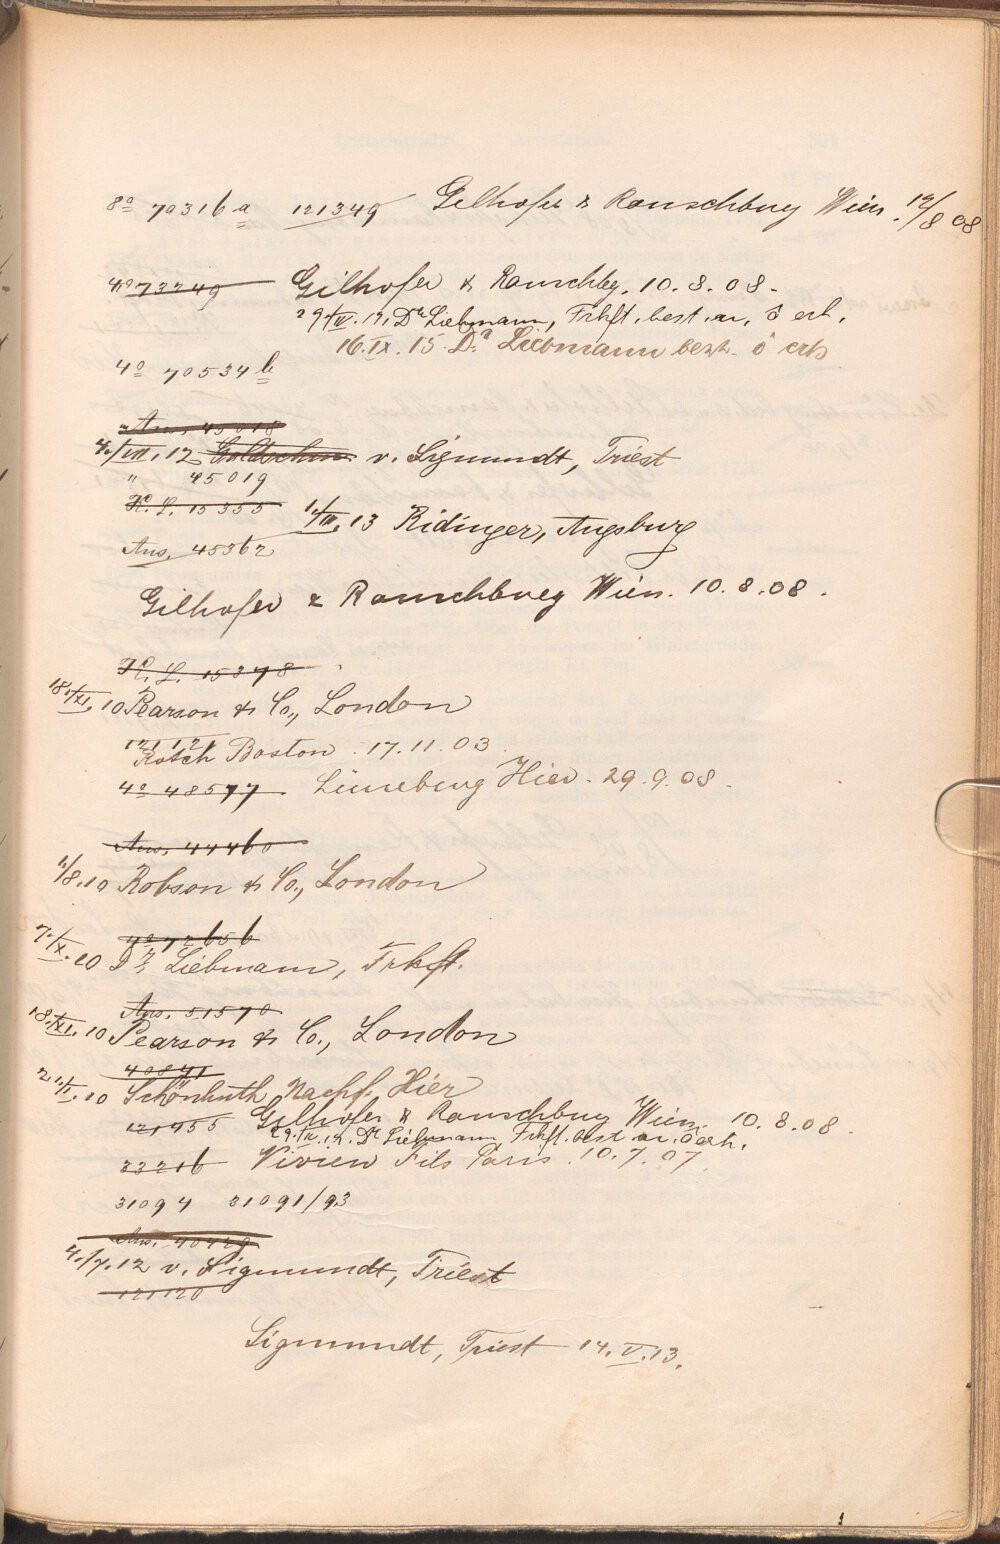 8º 70316 a 121349 Gilhofer & Ranschburg Wien 12/8 08
4º 73249 Gilhofer & Ranschbg. 10.8.08.
29./IV.12, Dr Liebmann, Frkft. best. ar. ō erh.
16.IX.15 Dr Liebmann best. ō erh
4º 70534 b
Aus. 45018
4./VII.12 Goldschm v. Sigmundt, Triest
" 45019
K. L. 15355 1./III.13 Ridinger, Augsburg
Aus. 45362
Gilhofer & Ranschburg Wien. 10.8.08.
K. L. 15378
18./XI.10 Pearson & Co., London
121121
Rotch Boston. 17.11.03.
4º 48577 Lüneburg Hier. 29.9.08.
Aus. 44460
1./8.10 Robson & Co., London
4º 72656
7./X.10 Dr Liebmann, Frkft.
Aus. 51570
18./XI.10 Pearson & Co., London
40841
21./I.10 Schönhuth Nachf. Hier
121455 Gilhofer & Ranschburg Wien. 10.8.08.
29./IV.12. Dr Liebmann Frkft. best. ar. ō erh.
33216 Vivien Fils Paris. 10.7.07.
31094 31091/93
Aus. 40429
4./7.12 v. Sigmundt, Triest
121120
Sigmundt, Triest 14.V.13.